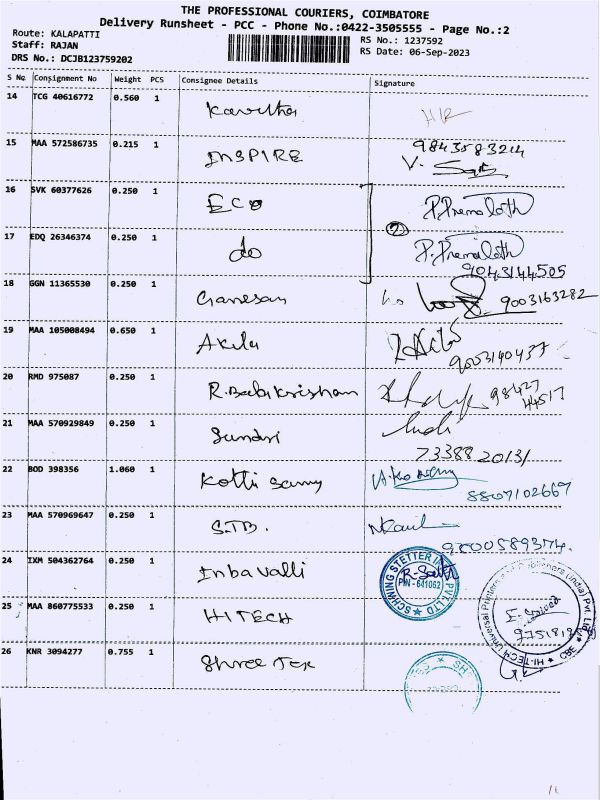 THE PROFESSIONAL COURIERS, COIMBATORE
Delivery Runsheet - PCC - Phone No.:0422-3505555 - Page No.:2
Route: KALAPATTI
Staff: RAJAN
DRS No.: DCJB123759202
RS No.: 1237592
RS Date: 06-Sep-2023
S No. Consignment No Weight PCS Consignee Details Signature
14 TCG 40616772 0.560 1 Kavitha
15 MAA 572586735 0.215 1 INSPIRE 9843583214
16 SVK 60377626 0.250 1 ECO P.Premalath
17 EDQ 26346374 0.250 1 do P.Premalath
2
9043144505
18 GGN 11365530 0.250 1 Ganesan 9003163282
19 MAA 105008494 0.650 1 Akila
9003140437
20 RMD 975087 0.250 1 R.Balakrishnan 98427
44517
21 MAA 570929849 0.250 1 Sundari
73388 20131
22 BOD 398356 1.060 1 Kotti Samy
8807102667
23 MAA 570969647 0.250 1 S.T.B.
9800589374
24 IXM 504362764 0.250 1 Inbavalli
SCHWING STETTER IN PVT. LTD
PIN - 641062
25 MAA 860775533 0.250 1 HITECH
HI-TECH Universal Printers (India) Pvt. Ltd. CBE
26 KNR 3094277 0.755 1 Shree Tex